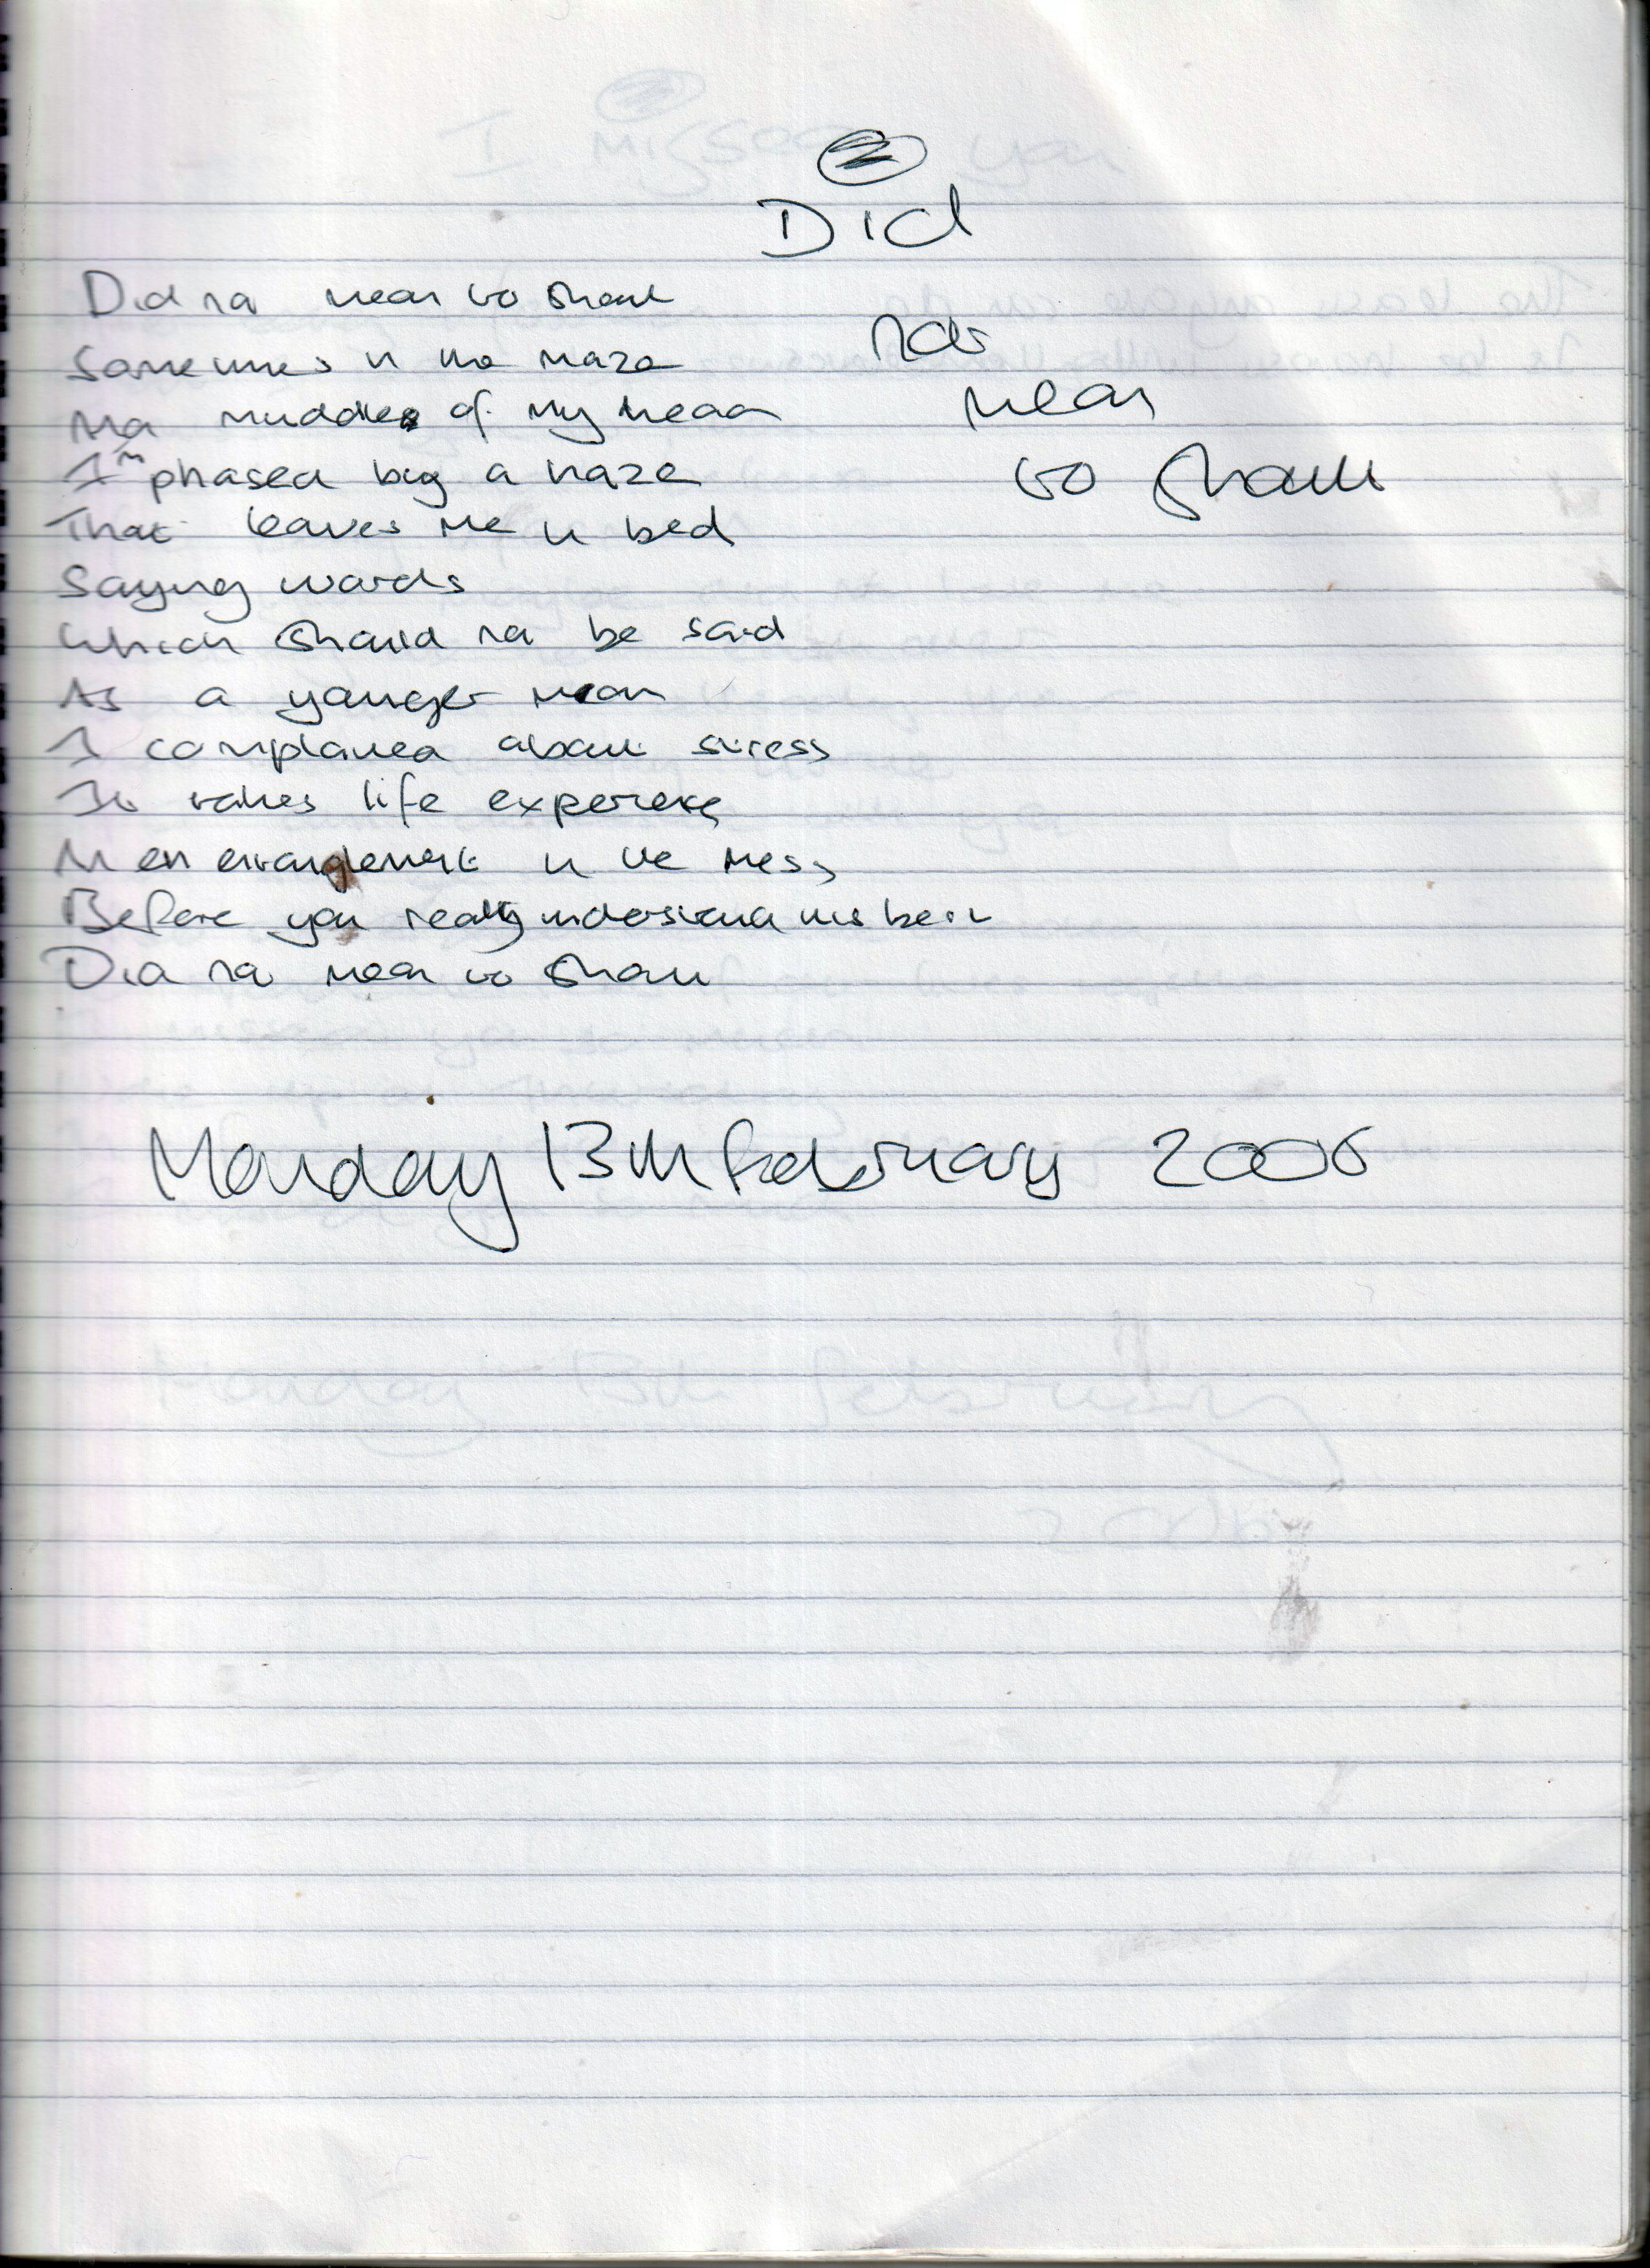 Did
not
mean
to shout
Did not mean to shout
Sometimes in the maze
The muddle of my head
I'm phased by a haze
That leaves me in bed
Saying words
Which should not be said
As a younger man
I complained about stress
It takes life experience
An entanglement in the mess
Before you really understand its best
Did not mean to shout
Monday 13th February 2006